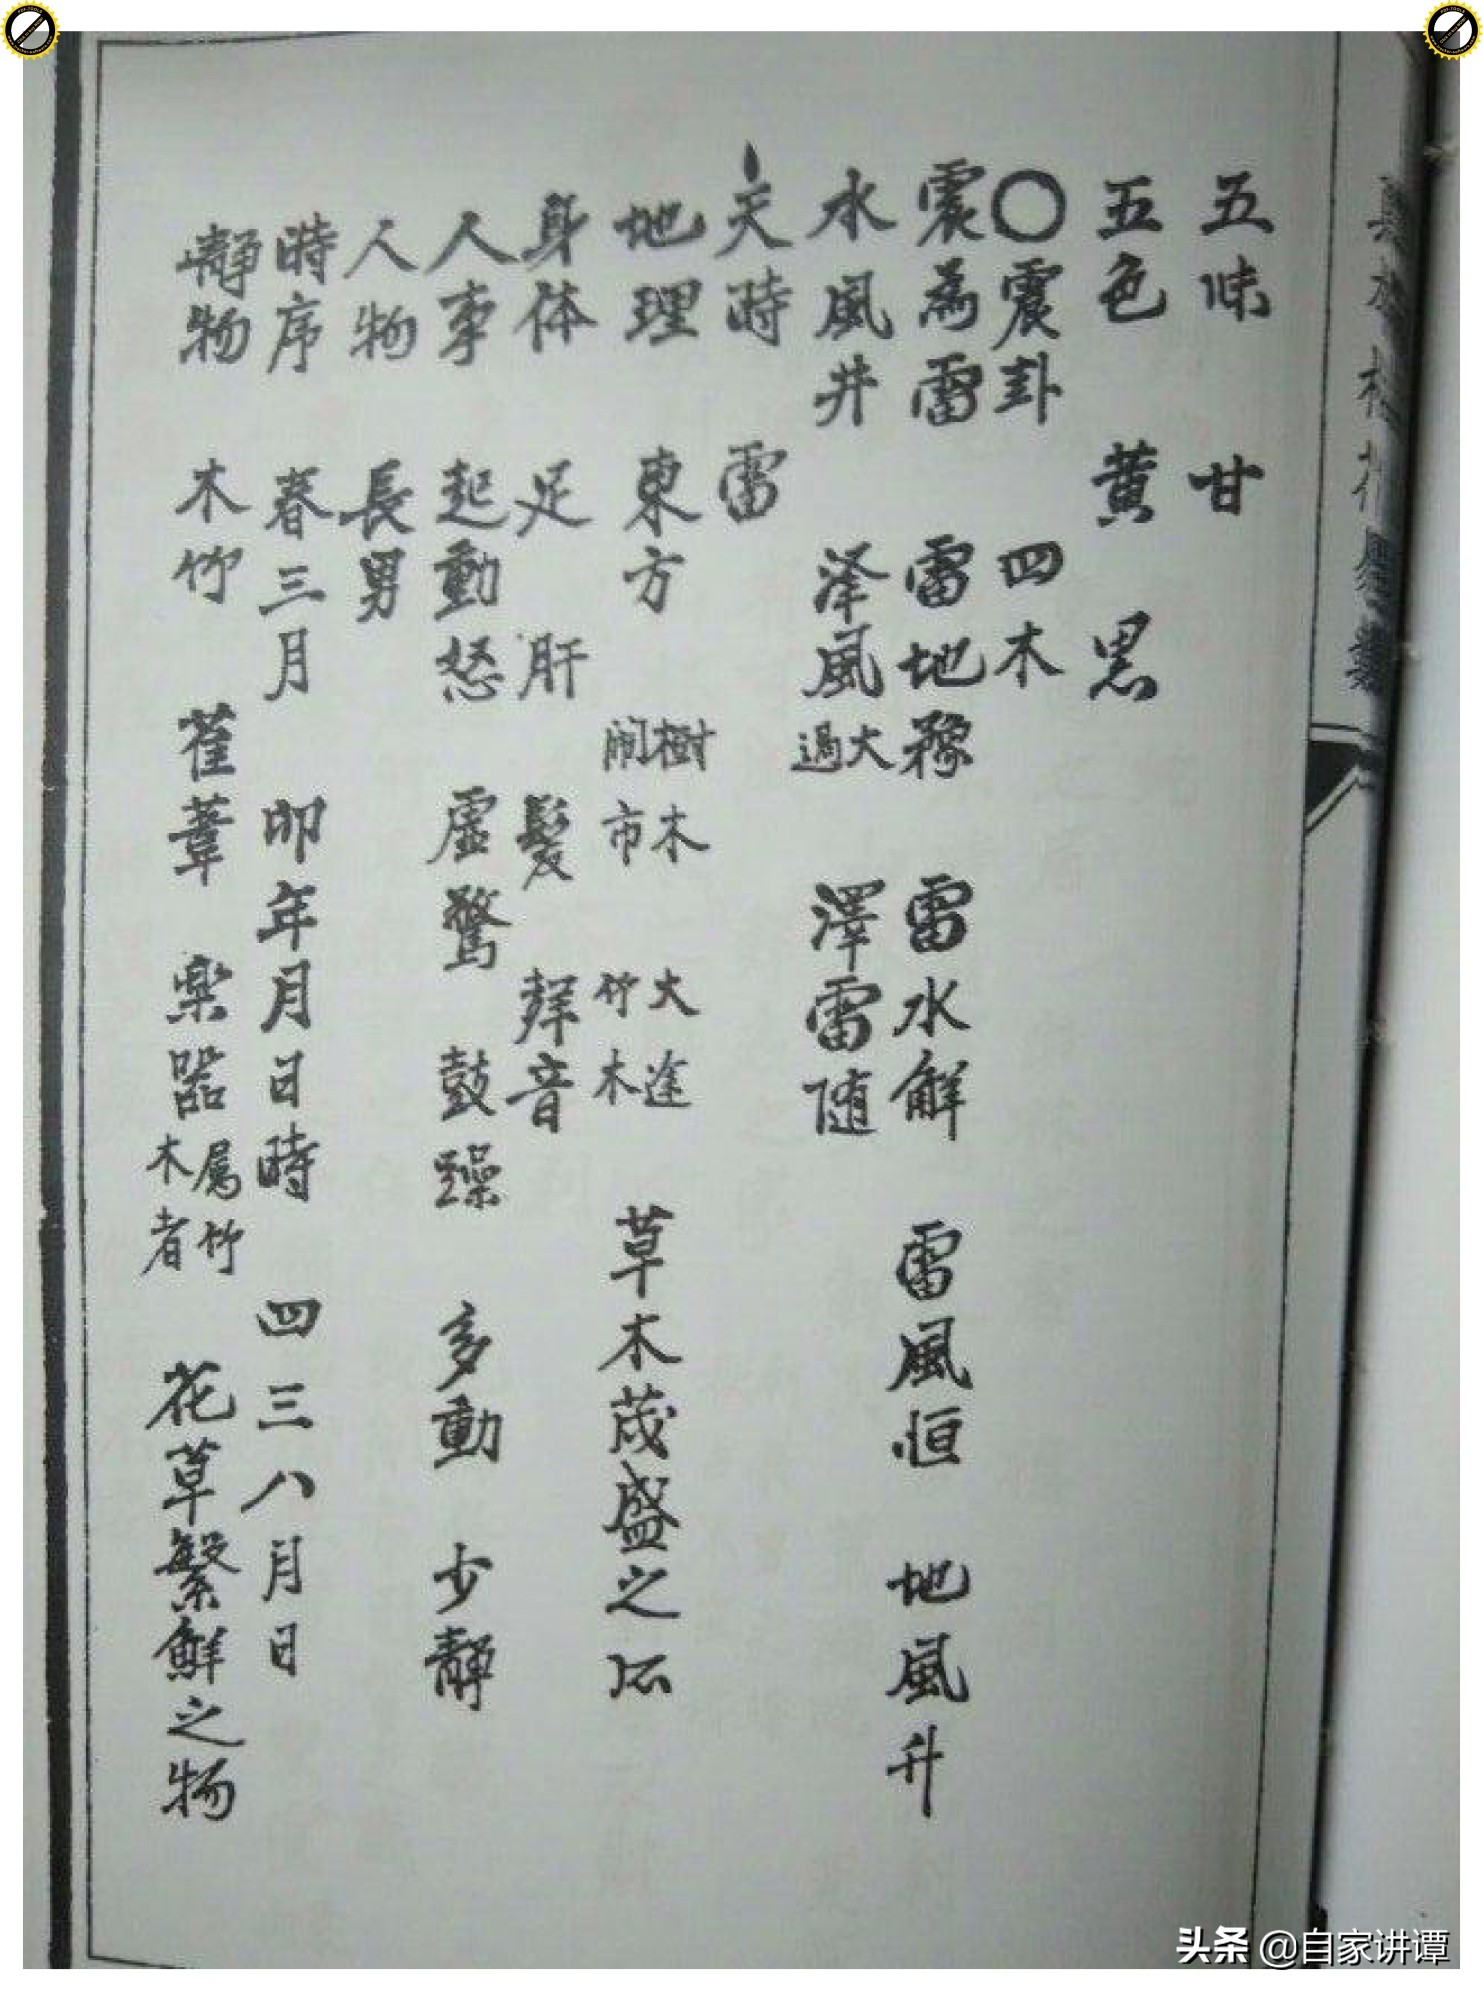 五味 甘
五色 黃 黑
〇震卦 四木
震為雷 雷地豫 雷水解 雷風恒 地風升
水風井 泽風大過 澤雷随
天時 雷
地理 東方 樹木 闹市 大途 竹木 草木茂盛之所
身体 足 肝 髮 聲音
人事 起動怒 虛驚 鼓躁 多動 少靜
人物 長男
時序 春三月 卯年月日時 四三八月日
靜物 木竹 萑葦 樂器属竹木者 花草繁鮮之物
头条 @自家讲谭